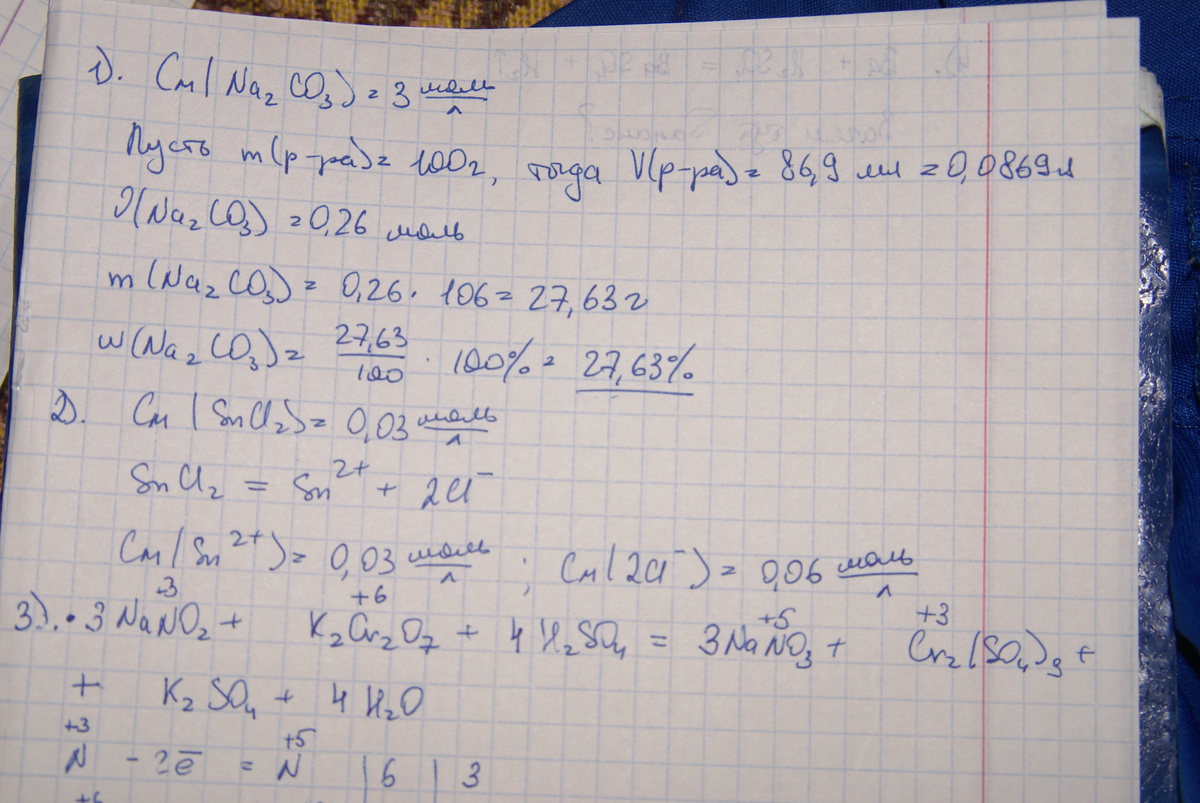 1). Cм(Na₂CO₃) = 3 моль/л
Пусть m(р-ра) = 100г, тогда V(р-ра) = 86,9 мл = 0,0869л
ν(Na₂CO₃) = 0,26 моль
m(Na₂CO₃) = 0,26 · 106 = 27,63г
w(Na₂CO₃) = 27,63/100 · 100% = 27,63%
2). Cм(SnCl₂) = 0,03 моль/л
SnCl₂ = Sn²⁺ + 2Cl⁻
Cм(Sn²⁺) = 0,03 моль/л ; Cм(2Cl⁻) = 0,06 моль/л
+3 +6 +5 +3
3). · 3NaNO₂ + K₂Cr₂O₇ + 4H₂SO₄ = 3NaNO₃ + Cr₂(SO₄)₃ +
+ K₂SO₄ + 4H₂O
+3 +5
N - 2e̅ = N | 6 | 3
+6